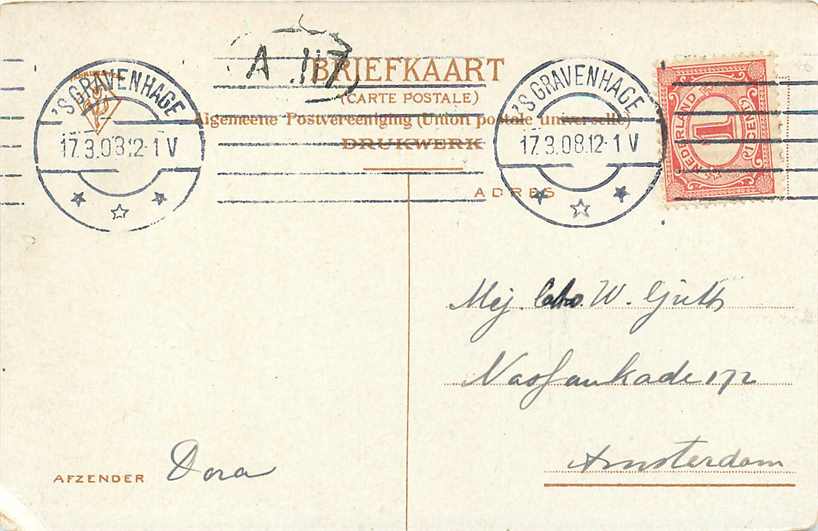 'S GRAVENHAGE
17.3.08.12-1 V
A 117
BRIEFKAART
(CARTE POSTALE)
Algemeene Postvereeniging (Union postale universelle)
DRUKWERK
'S GRAVENHAGE
17.3.08.12-1 V
NEDERLAND
1
CENT
ADRES
Mej. W.
Nassaukade 172
Amsterdam
AFZENDER Dora